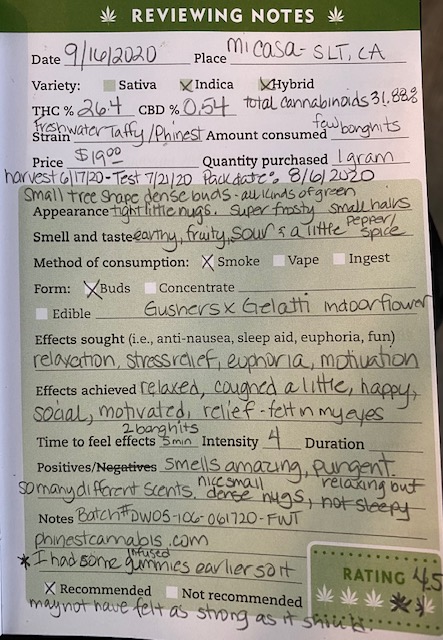 REVIEWING NOTES
Date 9/16/2020 Place mi casa - SLT, CA
Variety: Sativa Indica Hybrid
THC % 26.4 CBD % 0.54 total cannabinoids 31.88%
Strain Freshwater Taffy/Phinest Amount consumed few bong hits
Price $19.00 Quantity purchased 1 gram
harvest 6/17/20 - Test 7/21/20 Pack date: 8/6/2020
Small tree shape dense buds - all kinds of green
Appearance tight little nugs. Super frosty small hairs
Smell and taste earthy, fruity, sour & a little pepper/spice
Method of consumption: Smoke Vape Ingest
Form: Buds Concentrate
Edible Gushers x Gelatti indoor flower
Effects sought (i.e., anti-nausea, sleep aid, euphoria, fun)
relaxation, stress relief, euphoria, motivation
Effects achieved relaxed, coughed a little, happy,
social, motivated, relief - felt in my eyes
2 bong hits
Time to feel effects 5 min Intensity 4 Duration
Positives/Negatives smells amazing, pungent.
so many different scents. nice small dense nugs, relaxing but not sleepy
Notes Batch# DW05-106-061720-FWT
phinestcannabis.com
* I had some infused gummies earlier so it
RATING 4.5
Recommended Not recommended
may not have felt as strong as it should.